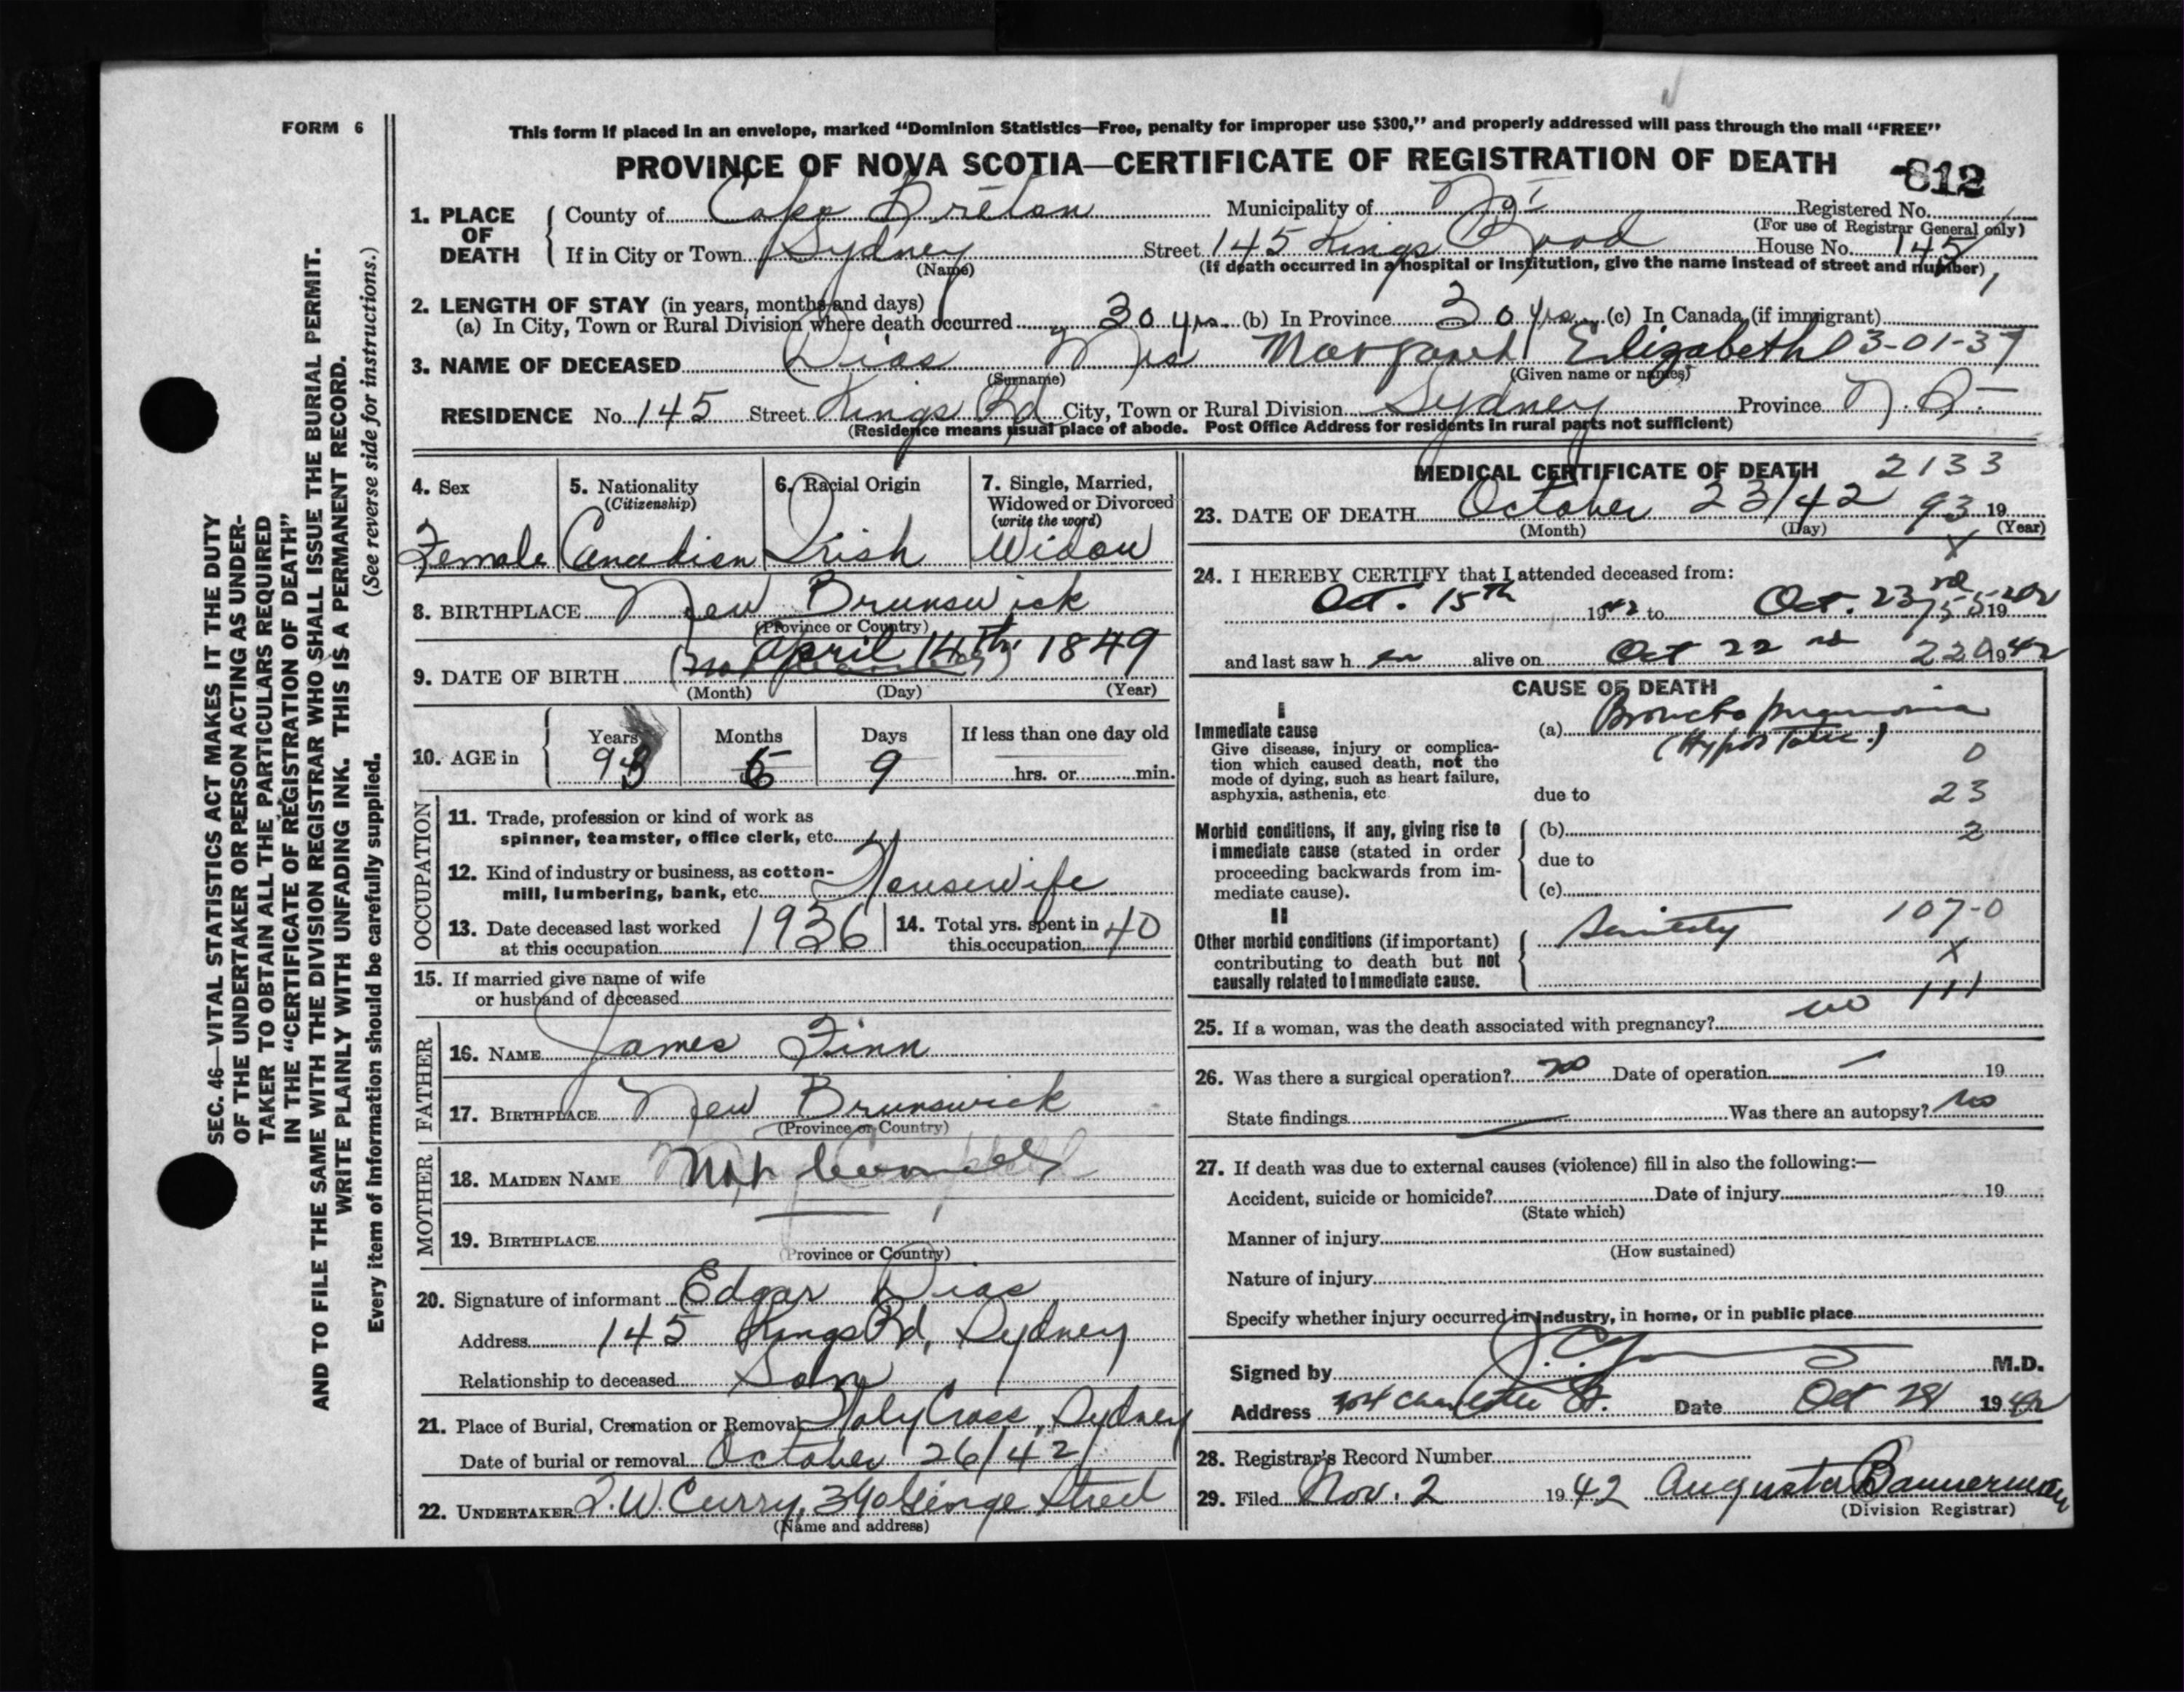 FORM 6
This form if placed in an envelope, marked "Dominion Statistics—Free, penalty for improper use $300," and properly addressed will pass through the mail "FREE"
PROVINCE OF NOVA SCOTIA—CERTIFICATE OF REGISTRATION OF DEATH
812
1. PLACE OF DEATH
County of Cape Breton Municipality of Registered No.
(For use of Registrar General only)
If in City or Town Sydney Street 145 Kings Road House No. 145
(Name) (If death occurred in a hospital or institution, give the name instead of street and number)
2. LENGTH OF STAY (in years, months and days)
(a) In City, Town or Rural Division where death occurred 30 yrs. (b) In Province 30 yrs. (c) In Canada (if immigrant)
3. NAME OF DECEASED Dias Mrs Margaret Elizabeth 03-01-37
(Surname) (Given name or names)
RESIDENCE No. 145 Street Kings Rd City, Town or Rural Division Sydney Province N.S.
(Residence means usual place of abode. Post Office Address for residents in rural parts not sufficient)
4. Sex 5. Nationality 6. Racial Origin 7. Single, Married, Widowed or Divorced
(Citizenship) (write the word)
Female Canadian Irish Widow
8. BIRTHPLACE New Brunswick
(Province or Country)
April 14th. 1849
9. DATE OF BIRTH
(Month) (Day) (Year)
10. AGE in Years Months Days If less than one day old
93 6 9 hrs. or min.
OCCUPATION
11. Trade, profession or kind of work as
spinner, teamster, office clerk, etc.
12. Kind of industry or business, as cotton-
mill, lumbering, bank, etc. Housewife
13. Date deceased last worked
at this occupation 1936
14. Total yrs. spent in
this occupation 40
15. If married give name of wife
or husband of deceased
FATHER
16. NAME James Finn
17. BIRTHPLACE New Brunswick
(Province or Country)
MOTHER
18. MAIDEN NAME
19. BIRTHPLACE
(Province or Country)
20. Signature of informant Edgar Dias
Address 145 Kings Rd, Sydney
Relationship to deceased Son
21. Place of Burial, Cremation or Removal Holy Cross, Sydney
Date of burial or removal October 26/42
22. UNDERTAKER W. Curry, 340 George Street
(Name and address)
MEDICAL CERTIFICATE OF DEATH 2133
23. DATE OF DEATH October 23/42 93 19
(Month) (Day) (Year)
X
24. I HEREBY CERTIFY that I attended deceased from:
Oct. 15th 1942 to Oct. 23rd 19
and last saw h er alive on Oct 22 nd 220 1942
CAUSE OF DEATH
I
Immediate cause
Give disease, injury or complica-
tion which caused death, not the
mode of dying, such as heart failure,
asphyxia, asthenia, etc
(a) Broncho pneumonia
(Hypostatic.)
0
due to 23
Morbid conditions, if any, giving rise to
immediate cause (stated in order
proceeding backwards from im-
mediate cause).
(b) 2
due to
(c)
II
Other morbid conditions (if important)
contributing to death but not
causally related to immediate cause.
Senility 107-0
X
111
25. If a woman, was the death associated with pregnancy? no
26. Was there a surgical operation? no Date of operation — 19
State findings — Was there an autopsy? No
27. If death was due to external causes (violence) fill in also the following:—
Accident, suicide or homicide? Date of injury 19
(State which)
Manner of injury
(How sustained)
Nature of injury
Specify whether injury occurred in industry, in home, or in public place
Signed by M.D.
Address 304 Charlotte St. Date Oct 28 1942
28. Registrar's Record Number
29. Filed Nov. 2 1942 Augusta Bannerman
(Division Registrar)
SEC. 46—VITAL STATISTICS ACT MAKES IT THE DUTY
OF THE UNDERTAKER OR PERSON ACTING AS UNDER-
TAKER TO OBTAIN ALL THE PARTICULARS REQUIRED
IN THE "CERTIFICATE OF REGISTRATION OF DEATH"
AND TO FILE THE SAME WITH THE DIVISION REGISTRAR WHO SHALL ISSUE THE BURIAL PERMIT.
WRITE PLAINLY WITH UNFADING INK. THIS IS A PERMANENT RECORD.
Every item of information should be carefully supplied. (See reverse side for instructions.)